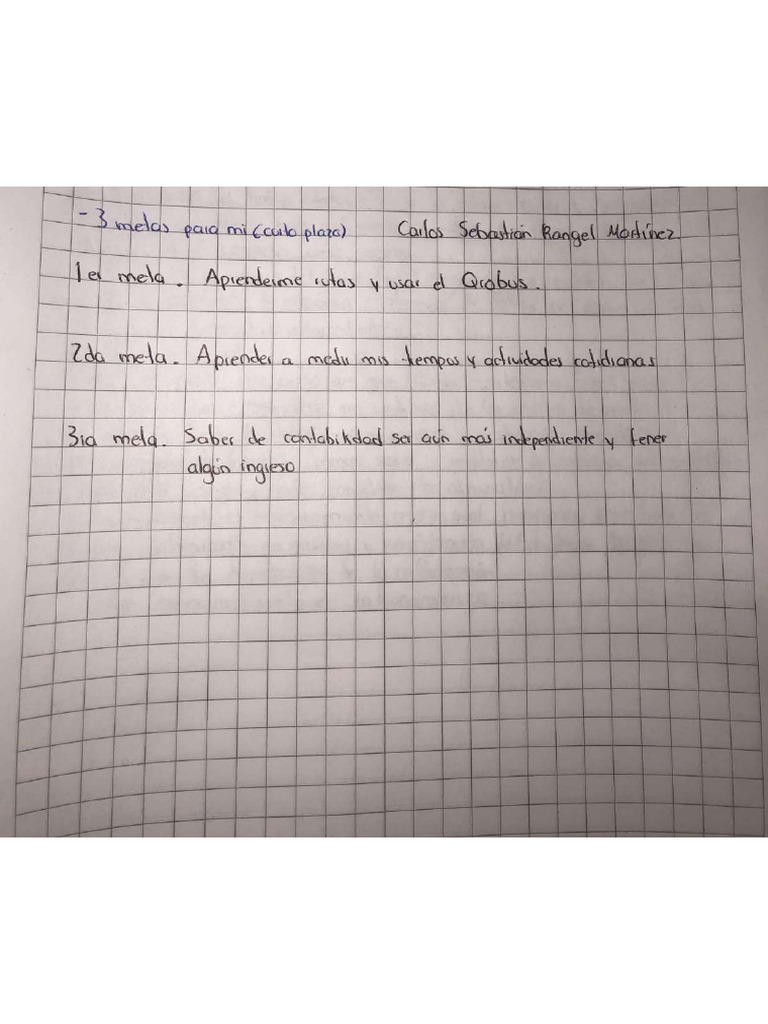 - 3 metas para mi (corto plazo) Carlos Sebastián Rangel Martínez
1er meta. Aprenderme rutas y usar el Qrobus.
2da meta. Aprender a medir mis tiempos y actividades cotidianas
3ra meta. Saber de contabilidad ser aún más independiente y tener
algún ingreso